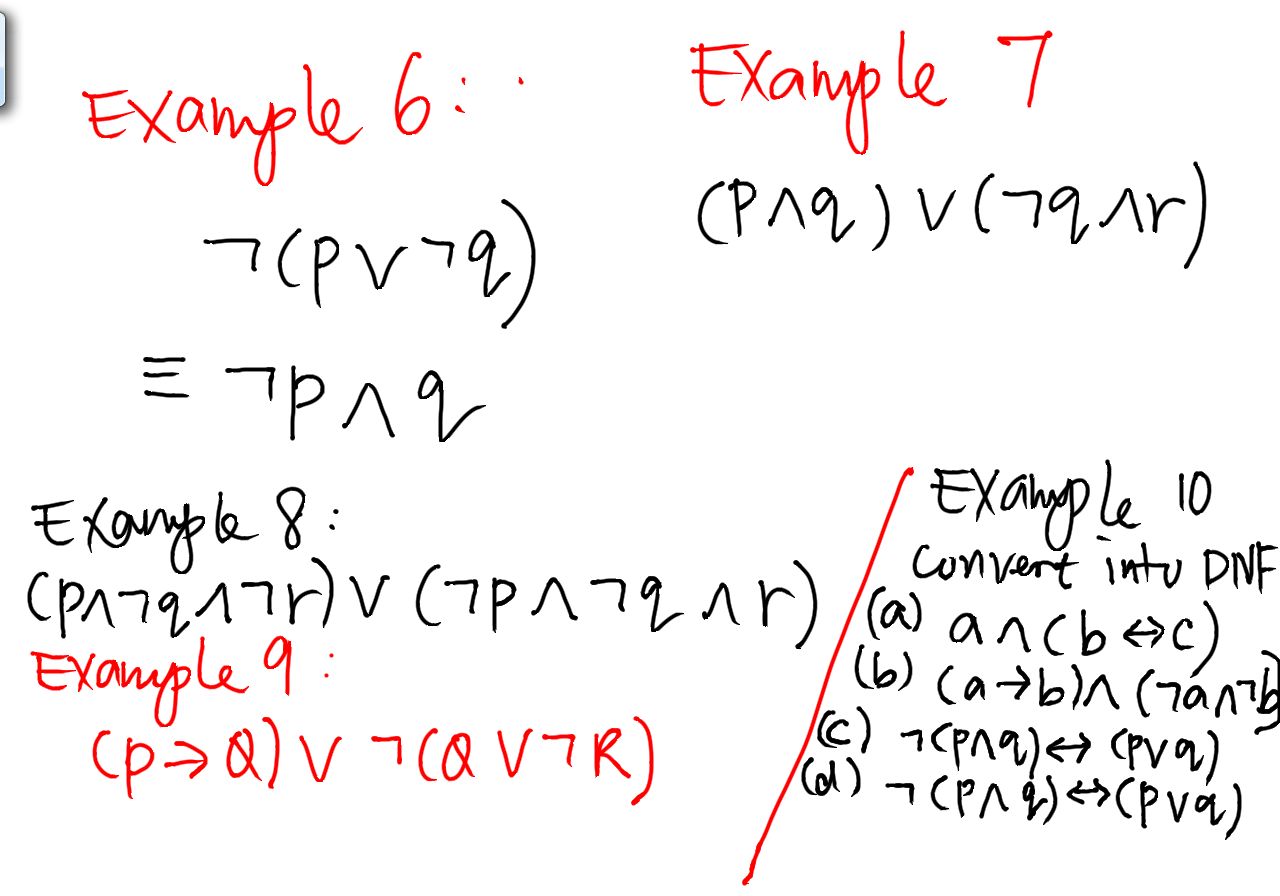 Example 6:
¬(p∨¬q)
≡ ¬p∧q
Example 7
(p∧q)∨(¬q∧r)
Example 8:
(p∧¬q∧¬r)∨(¬p∧¬q∧r)
Example 9:
(p→Q)∨¬(Q∨¬R)
Example 10
convert into DNF
(a) a∧(b↔c)
(b) (a→b)∧(¬a∧¬b)
(c) ¬(p∧q)↔(p∨q)
(d) ¬(p∧q)↔(p∨q)